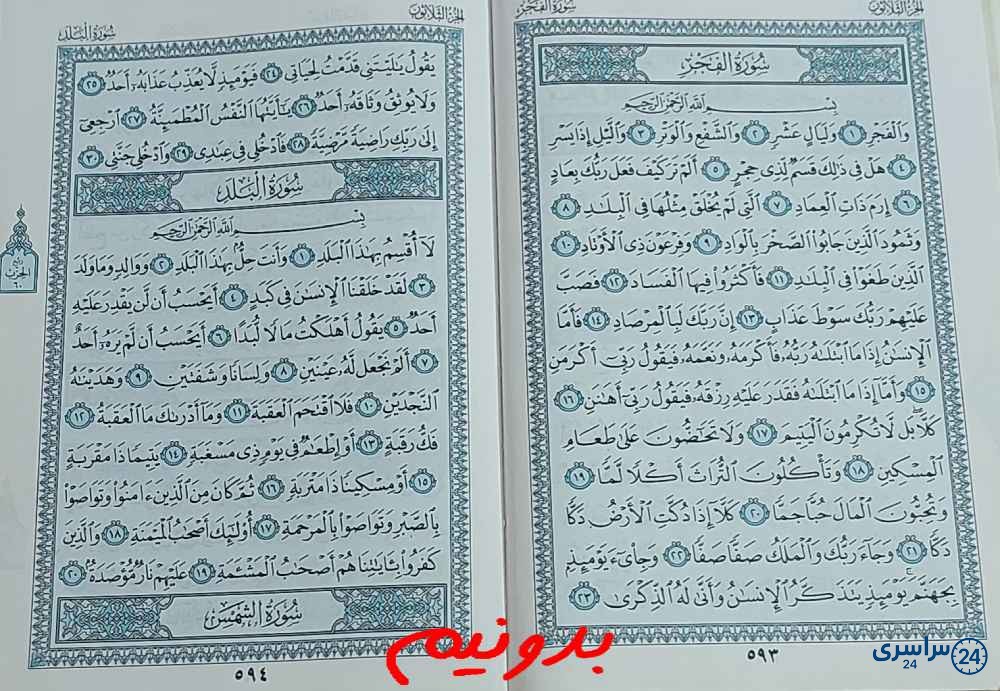 الجزء الثلاثون
سورة الفجر
سُورَةُ الْفَجْرِ
بِسْمِ اللَّهِ الرَّحْمَٰنِ الرَّحِيمِ
وَالْفَجْرِ ١ وَلَيَالٍ عَشْرٍ ٢ وَالشَّفْعِ وَالْوَتْرِ ٣ وَاللَّيْلِ إِذَا يَسْرِ
٤ هَلْ فِي ذَٰلِكَ قَسَمٌ لِّذِي حِجْرٍ ٥ أَلَمْ تَرَ كَيْفَ فَعَلَ رَبُّكَ بِعَادٍ
٦ إِرَمَ ذَاتِ الْعِمَادِ ٧ الَّتِي لَمْ يُخْلَقْ مِثْلُهَا فِي الْبِلَٰدِ ٨
وَثَمُودَ الَّذِينَ جَابُوا الصَّخْرَ بِالْوَادِ ٩ وَفِرْعَوْنَ ذِي الْأَوْتَادِ ١٠
الَّذِينَ طَغَوْا فِي الْبِلَٰدِ ١١ فَأَكْثَرُوا فِيهَا الْفَسَادَ ١٢ فَصَبَّ
عَلَيْهِمْ رَبُّكَ سَوْطَ عَذَابٍ ١٣ إِنَّ رَبَّكَ لَبِالْمِرْصَادِ ١٤ فَأَمَّا
الْإِنسَٰنُ إِذَا مَا ابْتَلَىٰهُ رَبُّهُ فَأَكْرَمَهُ وَنَعَّمَهُ فَيَقُولُ رَبِّي أَكْرَمَنِ
١٥ وَأَمَّا إِذَا مَا ابْتَلَىٰهُ فَقَدَرَ عَلَيْهِ رِزْقَهُ فَيَقُولُ رَبِّي أَهَٰنَنِ ١٦
كَلَّا بَل لَّا تُكْرِمُونَ الْيَتِيمَ ١٧ وَلَا تَحَٰضُّونَ عَلَىٰ طَعَامِ
الْمِسْكِينِ ١٨ وَتَأْكُلُونَ التُّرَاثَ أَكْلًا لَّمًّا ١٩
وَتُحِبُّونَ الْمَالَ حُبًّا جَمًّا ٢٠ كَلَّا إِذَا دُكَّتِ الْأَرْضُ دَكًّا
دَكًّا ٢١ وَجَاءَ رَبُّكَ وَالْمَلَكُ صَفًّا صَفًّا ٢٢ وَجِايءَ يَوْمَئِذٍ
بِجَهَنَّمَ يَوْمَئِذٍ يَتَذَكَّرُ الْإِنسَٰنُ وَأَنَّىٰ لَهُ الذِّكْرَىٰ ٢٣
٥٩٣
الجزء الثلاثون
سورة البلد
يَقُولُ يَٰلَيْتَنِي قَدَّمْتُ لِحَيَاتِي ٢٤ فَيَوْمَئِذٍ لَّا يُعَذِّبُ عَذَابَهُ أَحَدٌ ٢٥
وَلَا يُوثِقُ وَثَاقَهُ أَحَدٌ ٢٦ يَٰأَيَّتُهَا النَّفْسُ الْمُطْمَئِنَّةُ ٢٧ ارْجِعِي
إِلَىٰ رَبِّكِ رَاضِيَةً مَّرْضِيَّةً ٢٨ فَادْخُلِي فِي عِبَٰدِي ٢٩ وَادْخُلِي جَنَّتِي ٣٠
سُورَةُ الْبَلَدِ
بِسْمِ اللَّهِ الرَّحْمَٰنِ الرَّحِيمِ
لَا أُقْسِمُ بِهَٰذَا الْبَلَدِ ١ وَأَنتَ حِلٌّ بِهَٰذَا الْبَلَدِ ٢ وَوَالِدٍ وَمَا وَلَدَ
٣ لَقَدْ خَلَقْنَا الْإِنسَٰنَ فِي كَبَدٍ ٤ أَيَحْسَبُ أَن لَّن يَقْدِرَ عَلَيْهِ
أَحَدٌ ٥ يَقُولُ أَهْلَكْتُ مَالًا لُّبَدًا ٦ أَيَحْسَبُ أَن لَّمْ يَرَهُ أَحَدٌ
٧ أَلَمْ نَجْعَل لَّهُ عَيْنَيْنِ ٨ وَلِسَانًا وَشَفَتَيْنِ ٩ وَهَدَيْنَٰهُ
النَّجْدَيْنِ ١٠ فَلَا اقْتَحَمَ الْعَقَبَةَ ١١ وَمَا أَدْرَىٰكَ مَا الْعَقَبَةُ ١٢
فَكُّ رَقَبَةٍ ١٣ أَوْ إِطْعَٰمٌ فِي يَوْمٍ ذِي مَسْغَبَةٍ ١٤ يَتِيمًا ذَا مَقْرَبَةٍ
١٥ أَوْ مِسْكِينًا ذَا مَتْرَبَةٍ ١٦ ثُمَّ كَانَ مِنَ الَّذِينَ ءَامَنُوا وَتَوَاصَوْا
بِالصَّبْرِ وَتَوَاصَوْا بِالْمَرْحَمَةِ ١٧ أُولَٰئِكَ أَصْحَٰبُ الْمَيْمَنَةِ ١٨ وَالَّذِينَ
كَفَرُوا بِـَٔايَٰتِنَا هُمْ أَصْحَٰبُ الْمَشْـَٔمَةِ ١٩ عَلَيْهِمْ نَارٌ مُّؤْصَدَةٌ ٢٠
سُورَةُ الشَّمْسِ
٥٩٤
الحزب
٦٠
بدونیم
سراسری 24
24